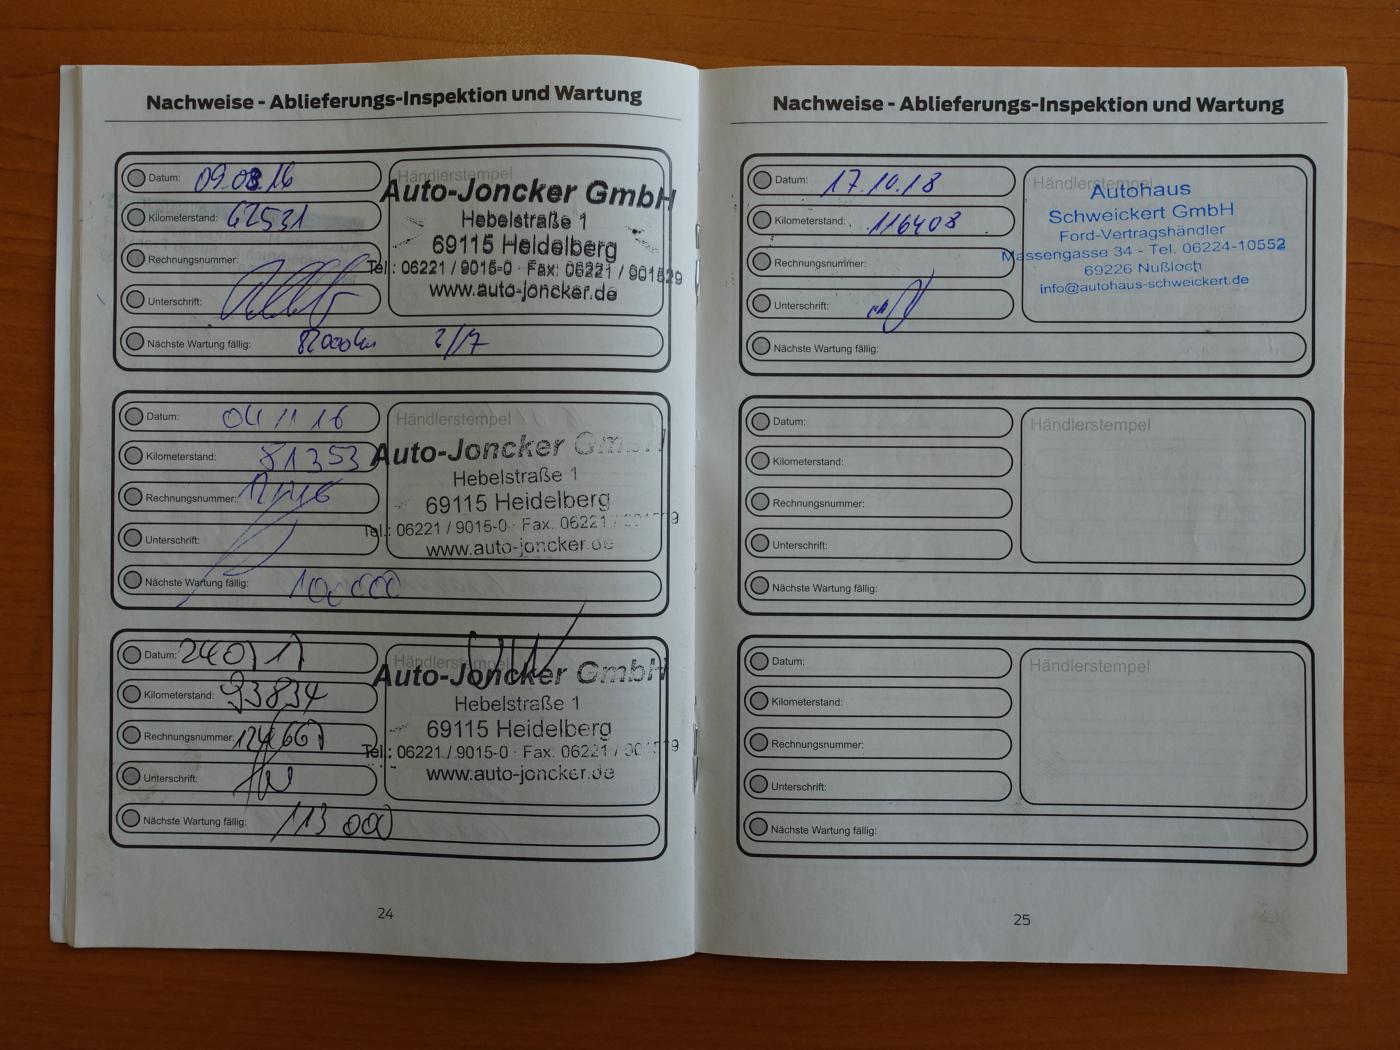 Nachweise - Ablieferungs-Inspektion und Wartung
Datum: 09.03.16
Kilometerstand: 62531
Rechnungsnummer:
Unterschrift:
Nächste Wartung fällig: 82000km 2/17
Händlerstempel
Auto-Joncker GmbH
Hebelstraße 1
69115 Heidelberg
Tel.: 06221 / 9015-0 · Fax: 06221 / 901529
www.auto-joncker.de
Datum: 04 11 16
Kilometerstand: 81353
Rechnungsnummer:
Unterschrift:
Nächste Wartung fällig: 100000
Händlerstempel
Auto-Joncker GmbH
Hebelstraße 1
69115 Heidelberg
Tel.: 06221 / 9015-0 · Fax: 06221 /
www.auto-joncker.de
Datum:
Kilometerstand: 93834
Rechnungsnummer:
Unterschrift:
Nächste Wartung fällig: 113 000
Händlerstempel
Auto-Joncker GmbH
Hebelstraße 1
69115 Heidelberg
Tel.: 06221 / 9015-0 · Fax: 06221 /
www.auto-joncker.de
24
Nachweise - Ablieferungs-Inspektion und Wartung
Datum: 17.10.18
Kilometerstand: 116408
Rechnungsnummer:
Unterschrift:
Nächste Wartung fällig:
Händlerstempel
Autohaus
Schweickert GmbH
Ford-Vertragshändler
Massengasse 34 - Tel. 06224-10552
69226 Nußloch
info@autohaus-schweickert.de
Datum:
Kilometerstand:
Rechnungsnummer:
Unterschrift:
Nächste Wartung fällig:
Händlerstempel
Datum:
Kilometerstand:
Rechnungsnummer:
Unterschrift:
Nächste Wartung fällig:
Händlerstempel
25